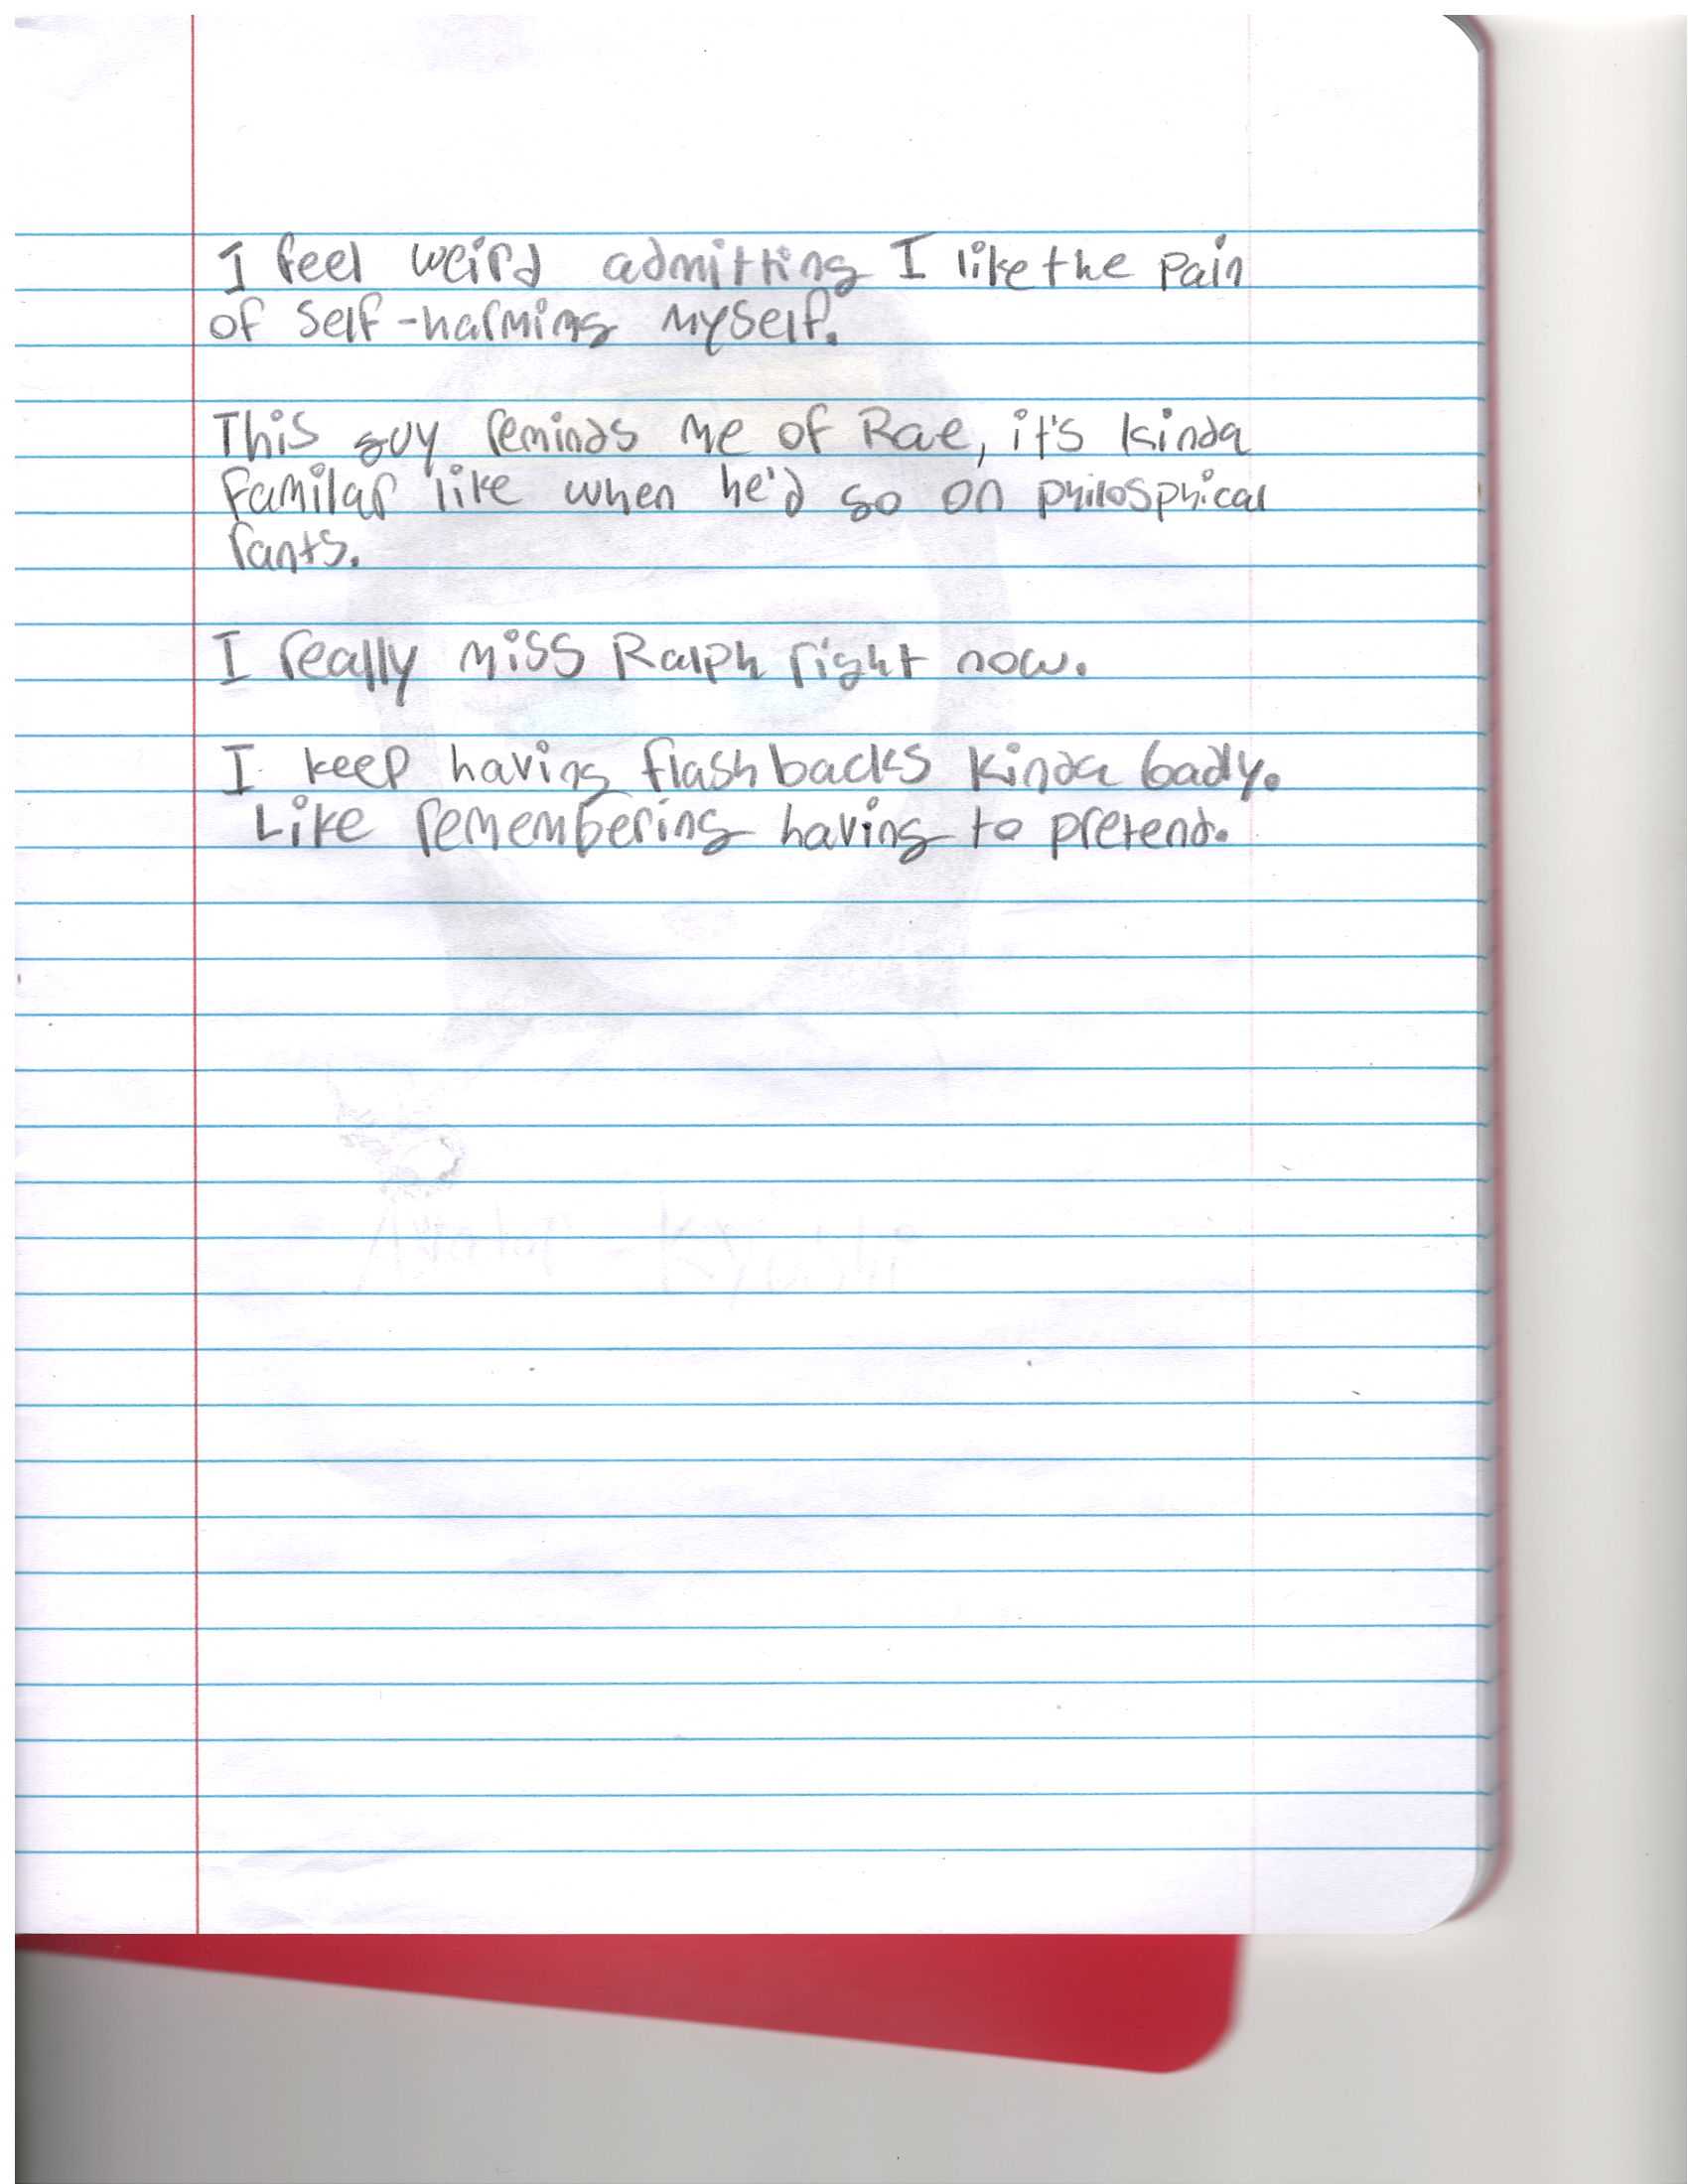 I feel weird admitting I like the pain
of self-harming myself.
This guy reminds me of Rae, it's kinda
familar like when he'd go on philosphical
rants.
I really miss Ralph right now.
I keep having flashbacks kinda badly.
Like remembering having to pretend.